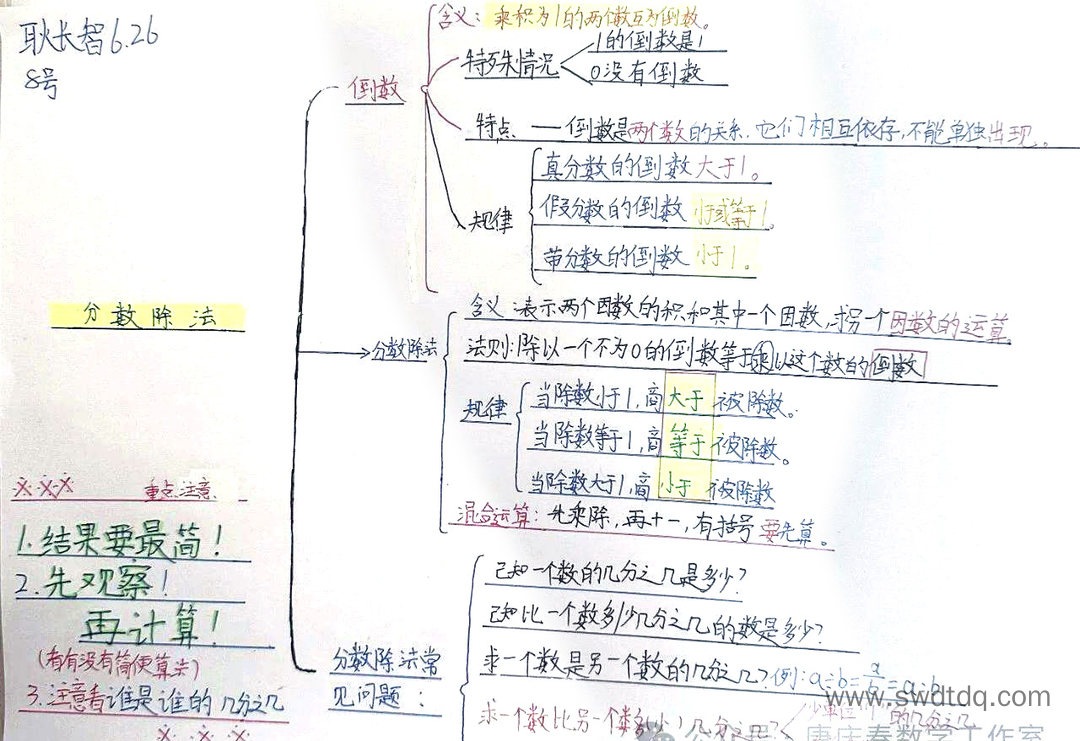 耿长智6.26
8号
分数除法
倒数
含义：乘积为1的两个数互为倒数。
特殊情况
1的倒数是1
0没有倒数
特点 — 倒数是两个数的关系.它们相互依存,不能单独出现。
规律
真分数的倒数大于1。
假分数的倒数小于或等于1。
带分数的倒数小于1。
分数除法
含义:表示两个因数的积和其中一个因数,求另一个因数的运算
法则:除以一个不为0的倒数等于乘以这个数的倒数
规律
当除数小于1,商大于被除数。
当除数等于1,商等于被除数。
当除数大于1,商小于被除数
混合运算：先乘除,再十一,有括号要先算。
分数除法常
见问题：
已知一个数的几分之几是多少?
已知比一个数多/少几分之几的数是多少?
求一个数是另一个数的几分之几?例:a÷b=a/b=a:b
求一个数比另一个数多/少几分之几?
的几分之几
重点注意
1.结果要最简!
2.先观察!
再计算!
(看有没有简便算法)
3.注意看谁是谁的几分之几
www.swdtdq.com
数学工作室